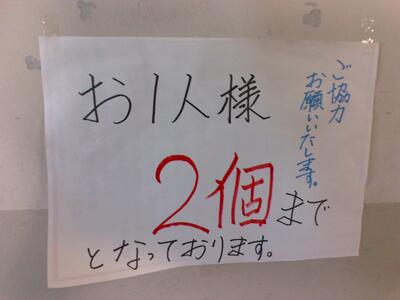 お1人様
2個まで
となっております。
ご協力
お願いいたします。